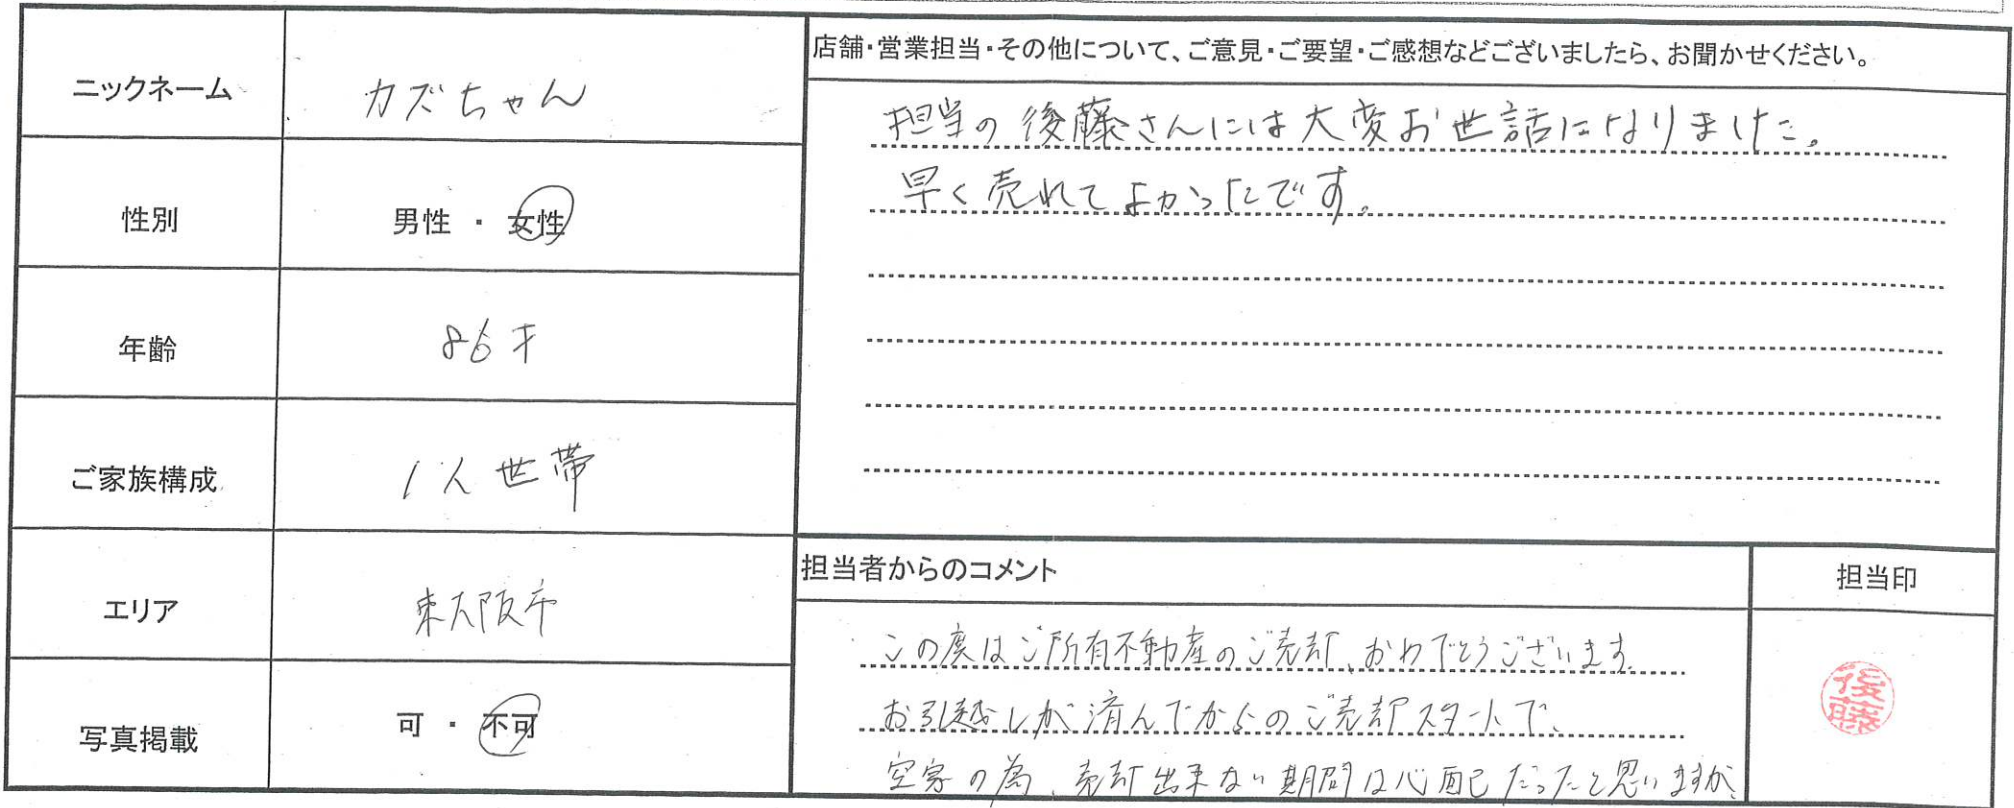 ニックネーム
カズちゃん
性別
男性 ・ 女性
年齢
86才
ご家族構成
1人世帯
エリア
東大阪市
写真掲載
可 ・ 不可
店舗・営業担当・その他について、ご意見・ご要望・ご感想などございましたら、お聞かせください。
担当の後藤さんには大変お世話になりました。
早く売れてよかったです。
担当者からのコメント
この度はご所有不動産のご売却、おめでとうございます。
お引越しが済んでからのご売却スタートで、
空家の為、売却出来ない期間は心配だったと思いますが、
担当印
後藤